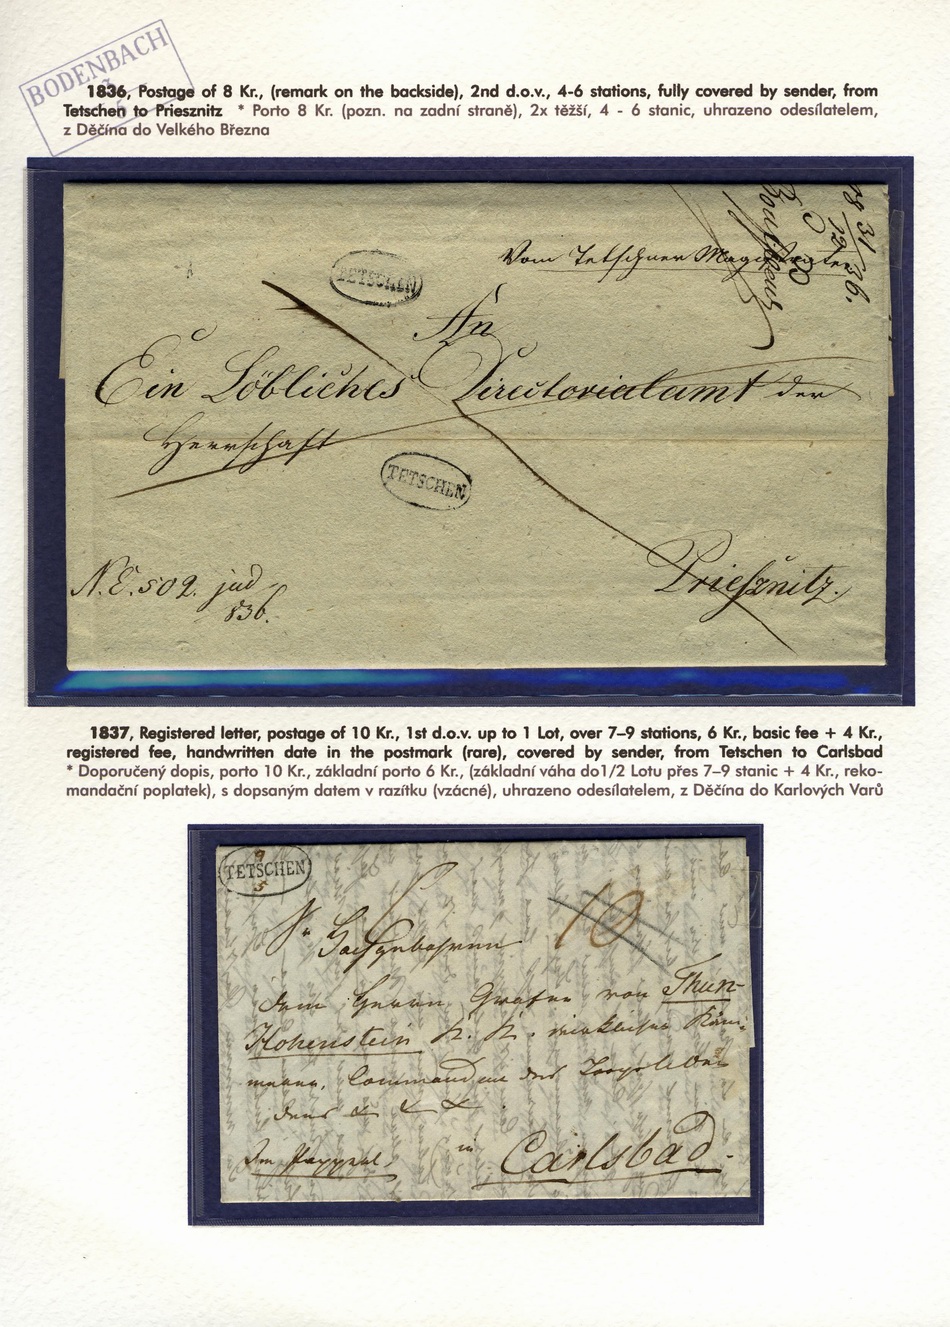 BODENBACH
1836, Postage of 8 Kr., (remark on the backside), 2nd d.o.v., 4-6 stations, fully covered by sender, from
Tetschen to Priesznitz * Porto 8 Kr. (pozn. na zadní straně), 2x těžší, 4 - 6 stanic, uhrazeno odesílatelem,
z Děčína do Velkého Března
Vom Tetschner
TETSCHEN
An
Ein Löbliches Directorialamt der
Herrschaft
TETSCHEN
Priesznitz.
N. E. 502. jud
836.
1837, Registered letter, postage of 10 Kr., 1st d.o.v. up to 1 Lot, over 7–9 stations, 6 Kr., basic fee + 4 Kr.,
registered fee, handwritten date in the postmark (rare), covered by sender, from Tetschen to Carlsbad
* Doporučený dopis, porto 10 Kr., základní porto 6 Kr., (základní váha do1/2 Lotu přes 7–9 stanic + 4 Kr., reko-
mandační poplatek), s dopsaným datem v razítku (vzácné), uhrazeno odesílatelem, z Děčína do Karlových Varů
9
TETSCHEN
5
10
dem Herrn Grafen von Thun-
Hohenstein K. K.
in Carlsbad.